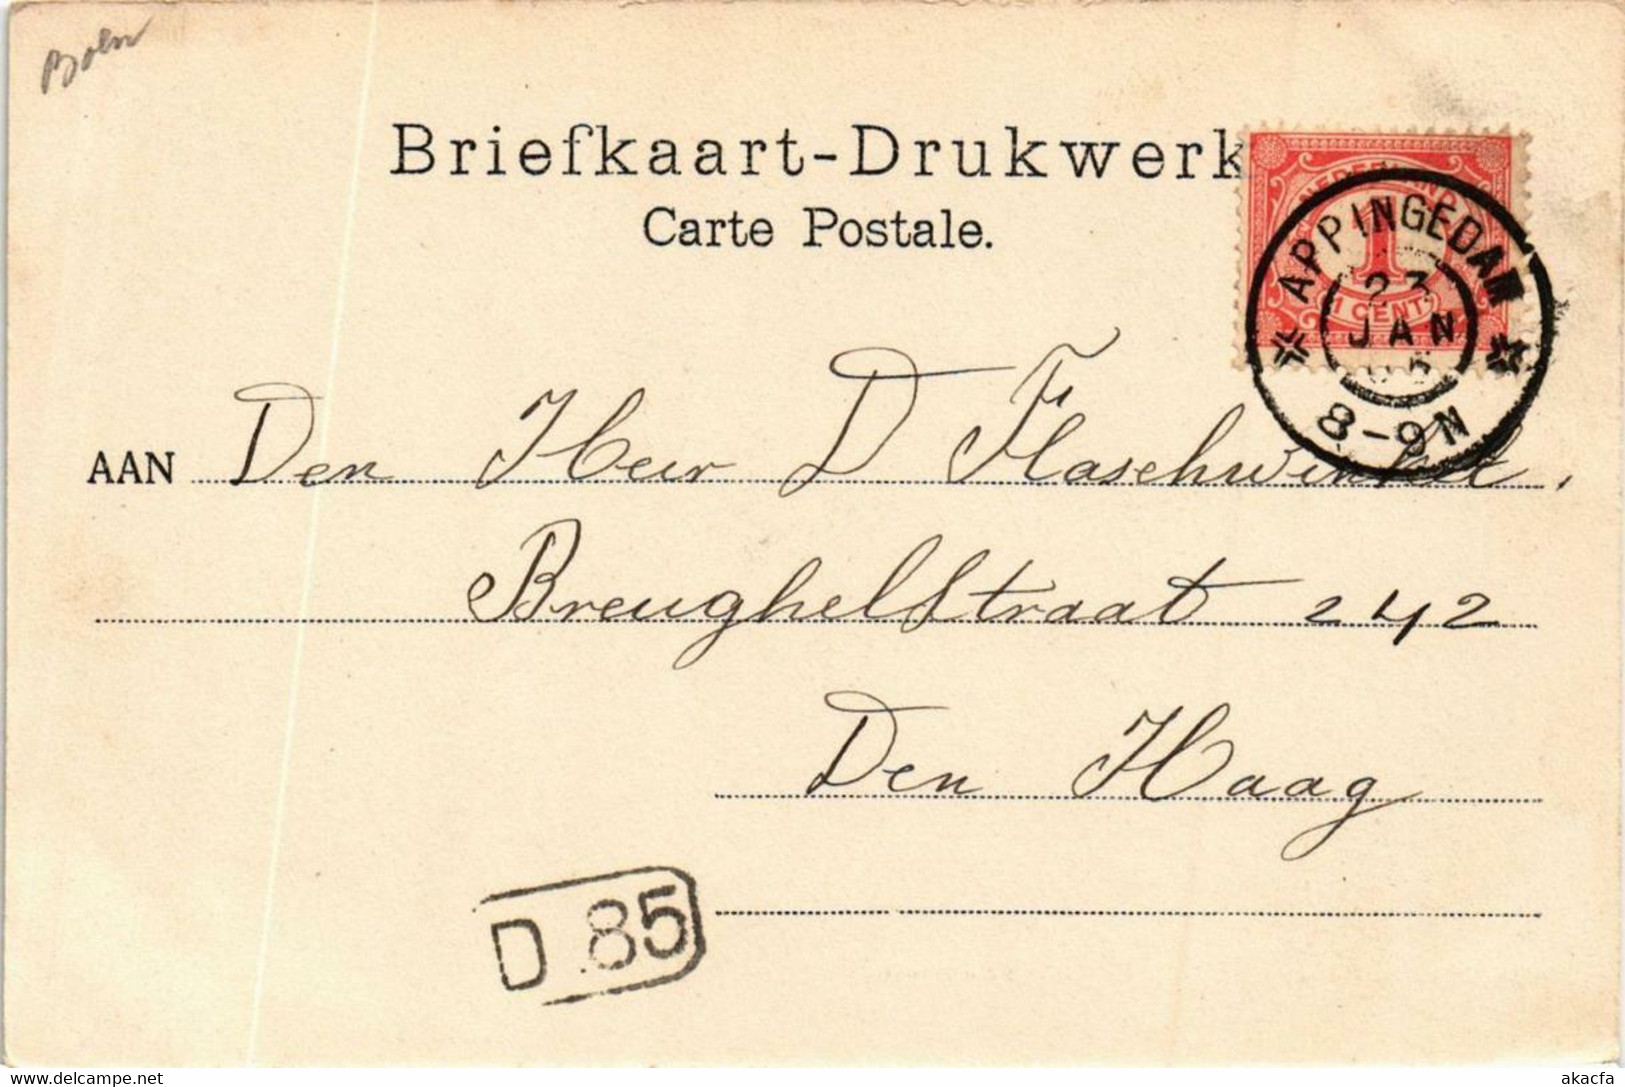 Boln
Briefkaart-Drukwerk
Carte Postale.
NEDERLAND
1
1 CENT
APPINGEDAM
23
JAN
05
8-9N
AAN Den Heer D Flaschwinkel,
BreughelStraat 242
Den Haag
D 85
delcampe.net
akacfa